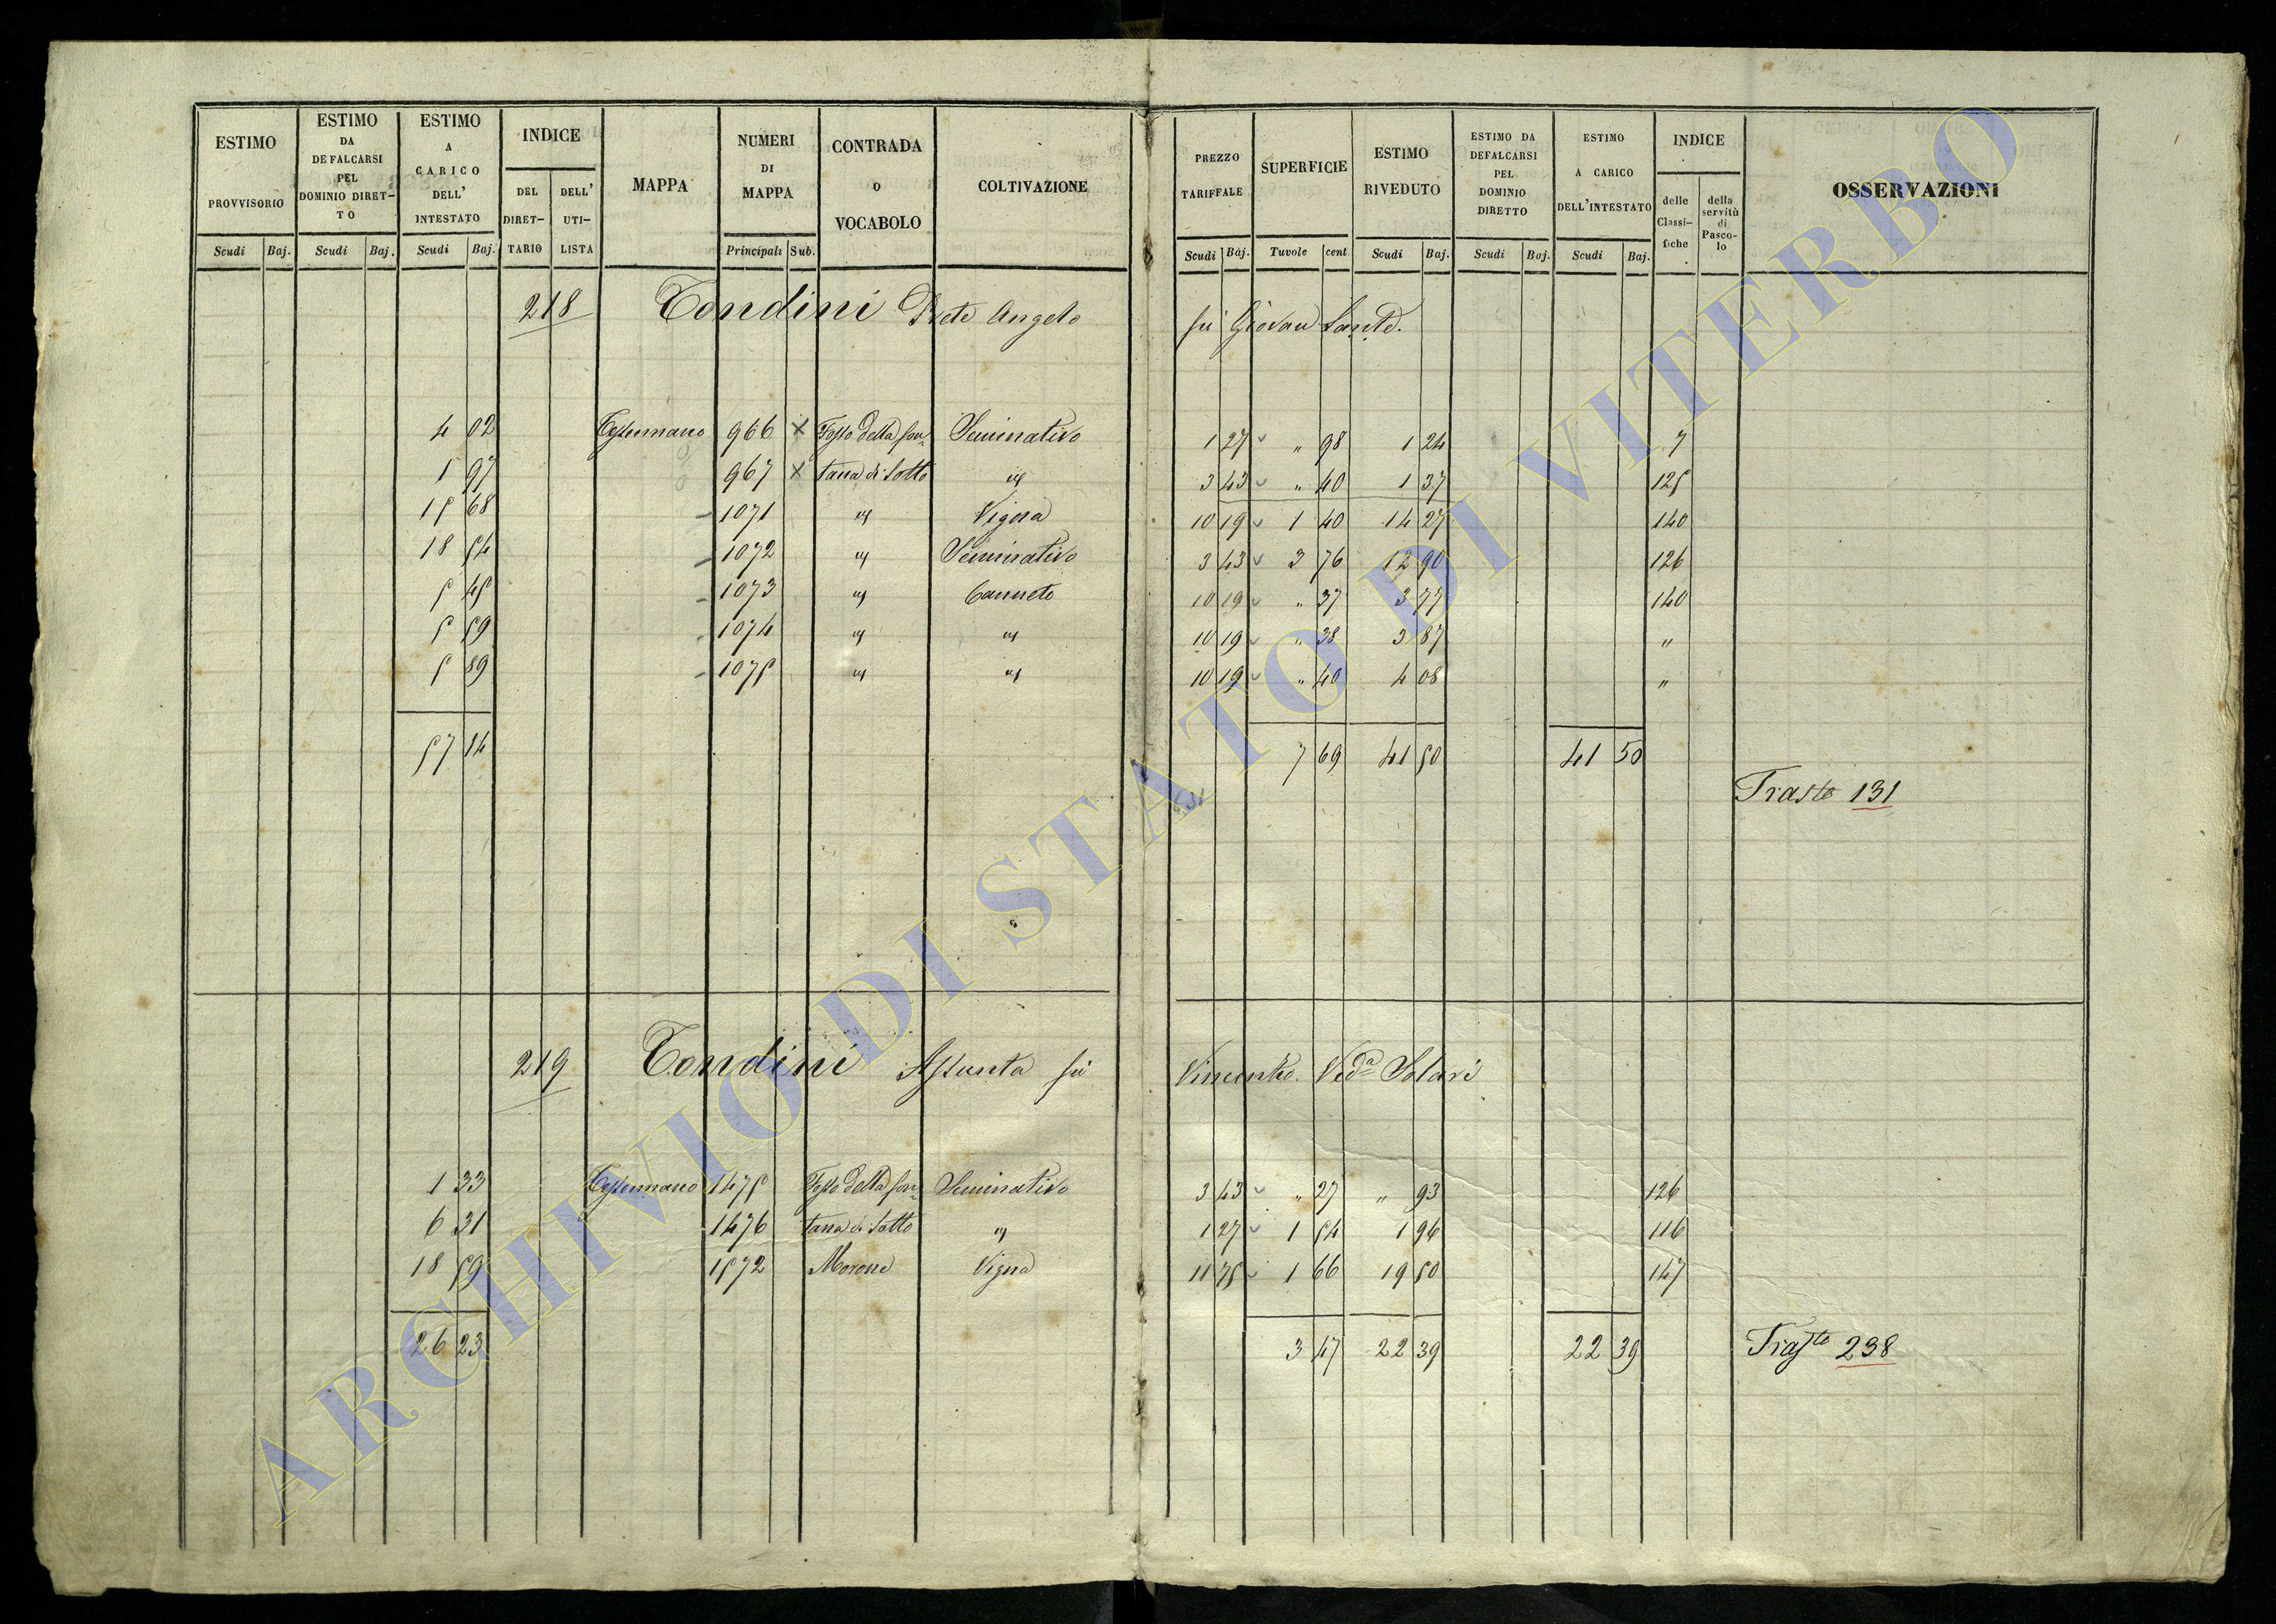 ESTIMO PROVVISORIO
ESTIMO DA DEFALCARSI PEL DOMINIO DIRETTO
ESTIMO A CARICO DELL' INTESTATO
INDICE
DEL DIRETTARIO
DELL' UTILISTA
MAPPA
NUMERI DI MAPPA
CONTRADA O VOCABOLO
COLTIVAZIONE
PREZZO TARIFFALE
SUPERFICIE
ESTIMO RIVEDUTO
ESTIMO DA DEFALCARSI PEL DOMINIO DIRETTO
ESTIMO A CARICO DELL'INTESTATO
INDICE
delle Classifiche
della servitù di Pascolo
OSSERVAZIONI
Scudi Baj. Scudi Baj. Scudi Baj. Principali Sub. Scudi Baj. Tavole cent Scudi Baj. Scudi Baj. Scudi Baj.
218 Tondini Angelo fù Giovan Sante.
4 02 966 x Fosso della Seminativo 1 27 " 98 1 24 7
1 97 967 x Tana di Sotto id 3 43 " 40 1 37 125
15 68 1071 id Vigna 10 19 1 40 14 27 140
18 54 1072 id Seminativo 3 43 3 76 12 90 126
5 45 1073 id Canneto 10 19 " 37 3 77 140
5 59 1074 id id 10 19 " 38 3 87 "
5 89 1075 id id 10 19 " 40 4 08 "
57 14 7 69 41 50 41 50
Trasto 131
219 Tondini Assunta fù Vincenzo. Ved.a Solari
1 33 1475 Fosso della Seminativo 3 43 " 27 " 93 126
6 31 1476 Tana di Sotto id 1 27 1 54 1 96 116
18 59 1572 Morone Vigna 11 75 1 66 19 50 147
26 23 3 47 22 39 22 39 Trasto 238
ARCHIVIO DI STATO DI VITERBO